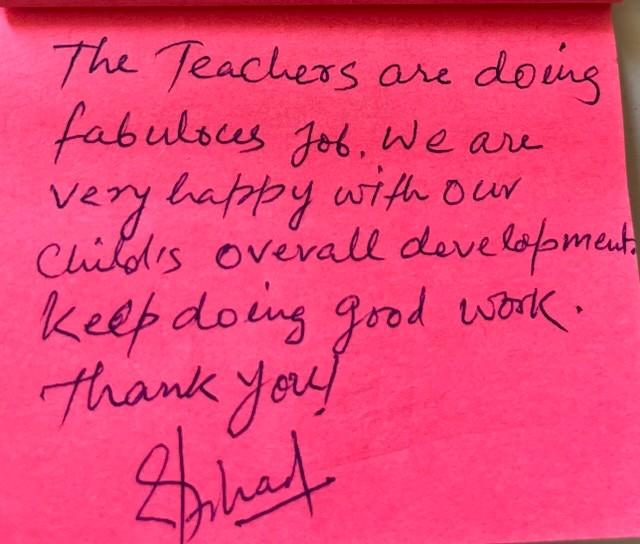 The Teachers are doing
fabulous job. We are
very happy with our
Child's overall development.
Keep doing good work.
Thank You!